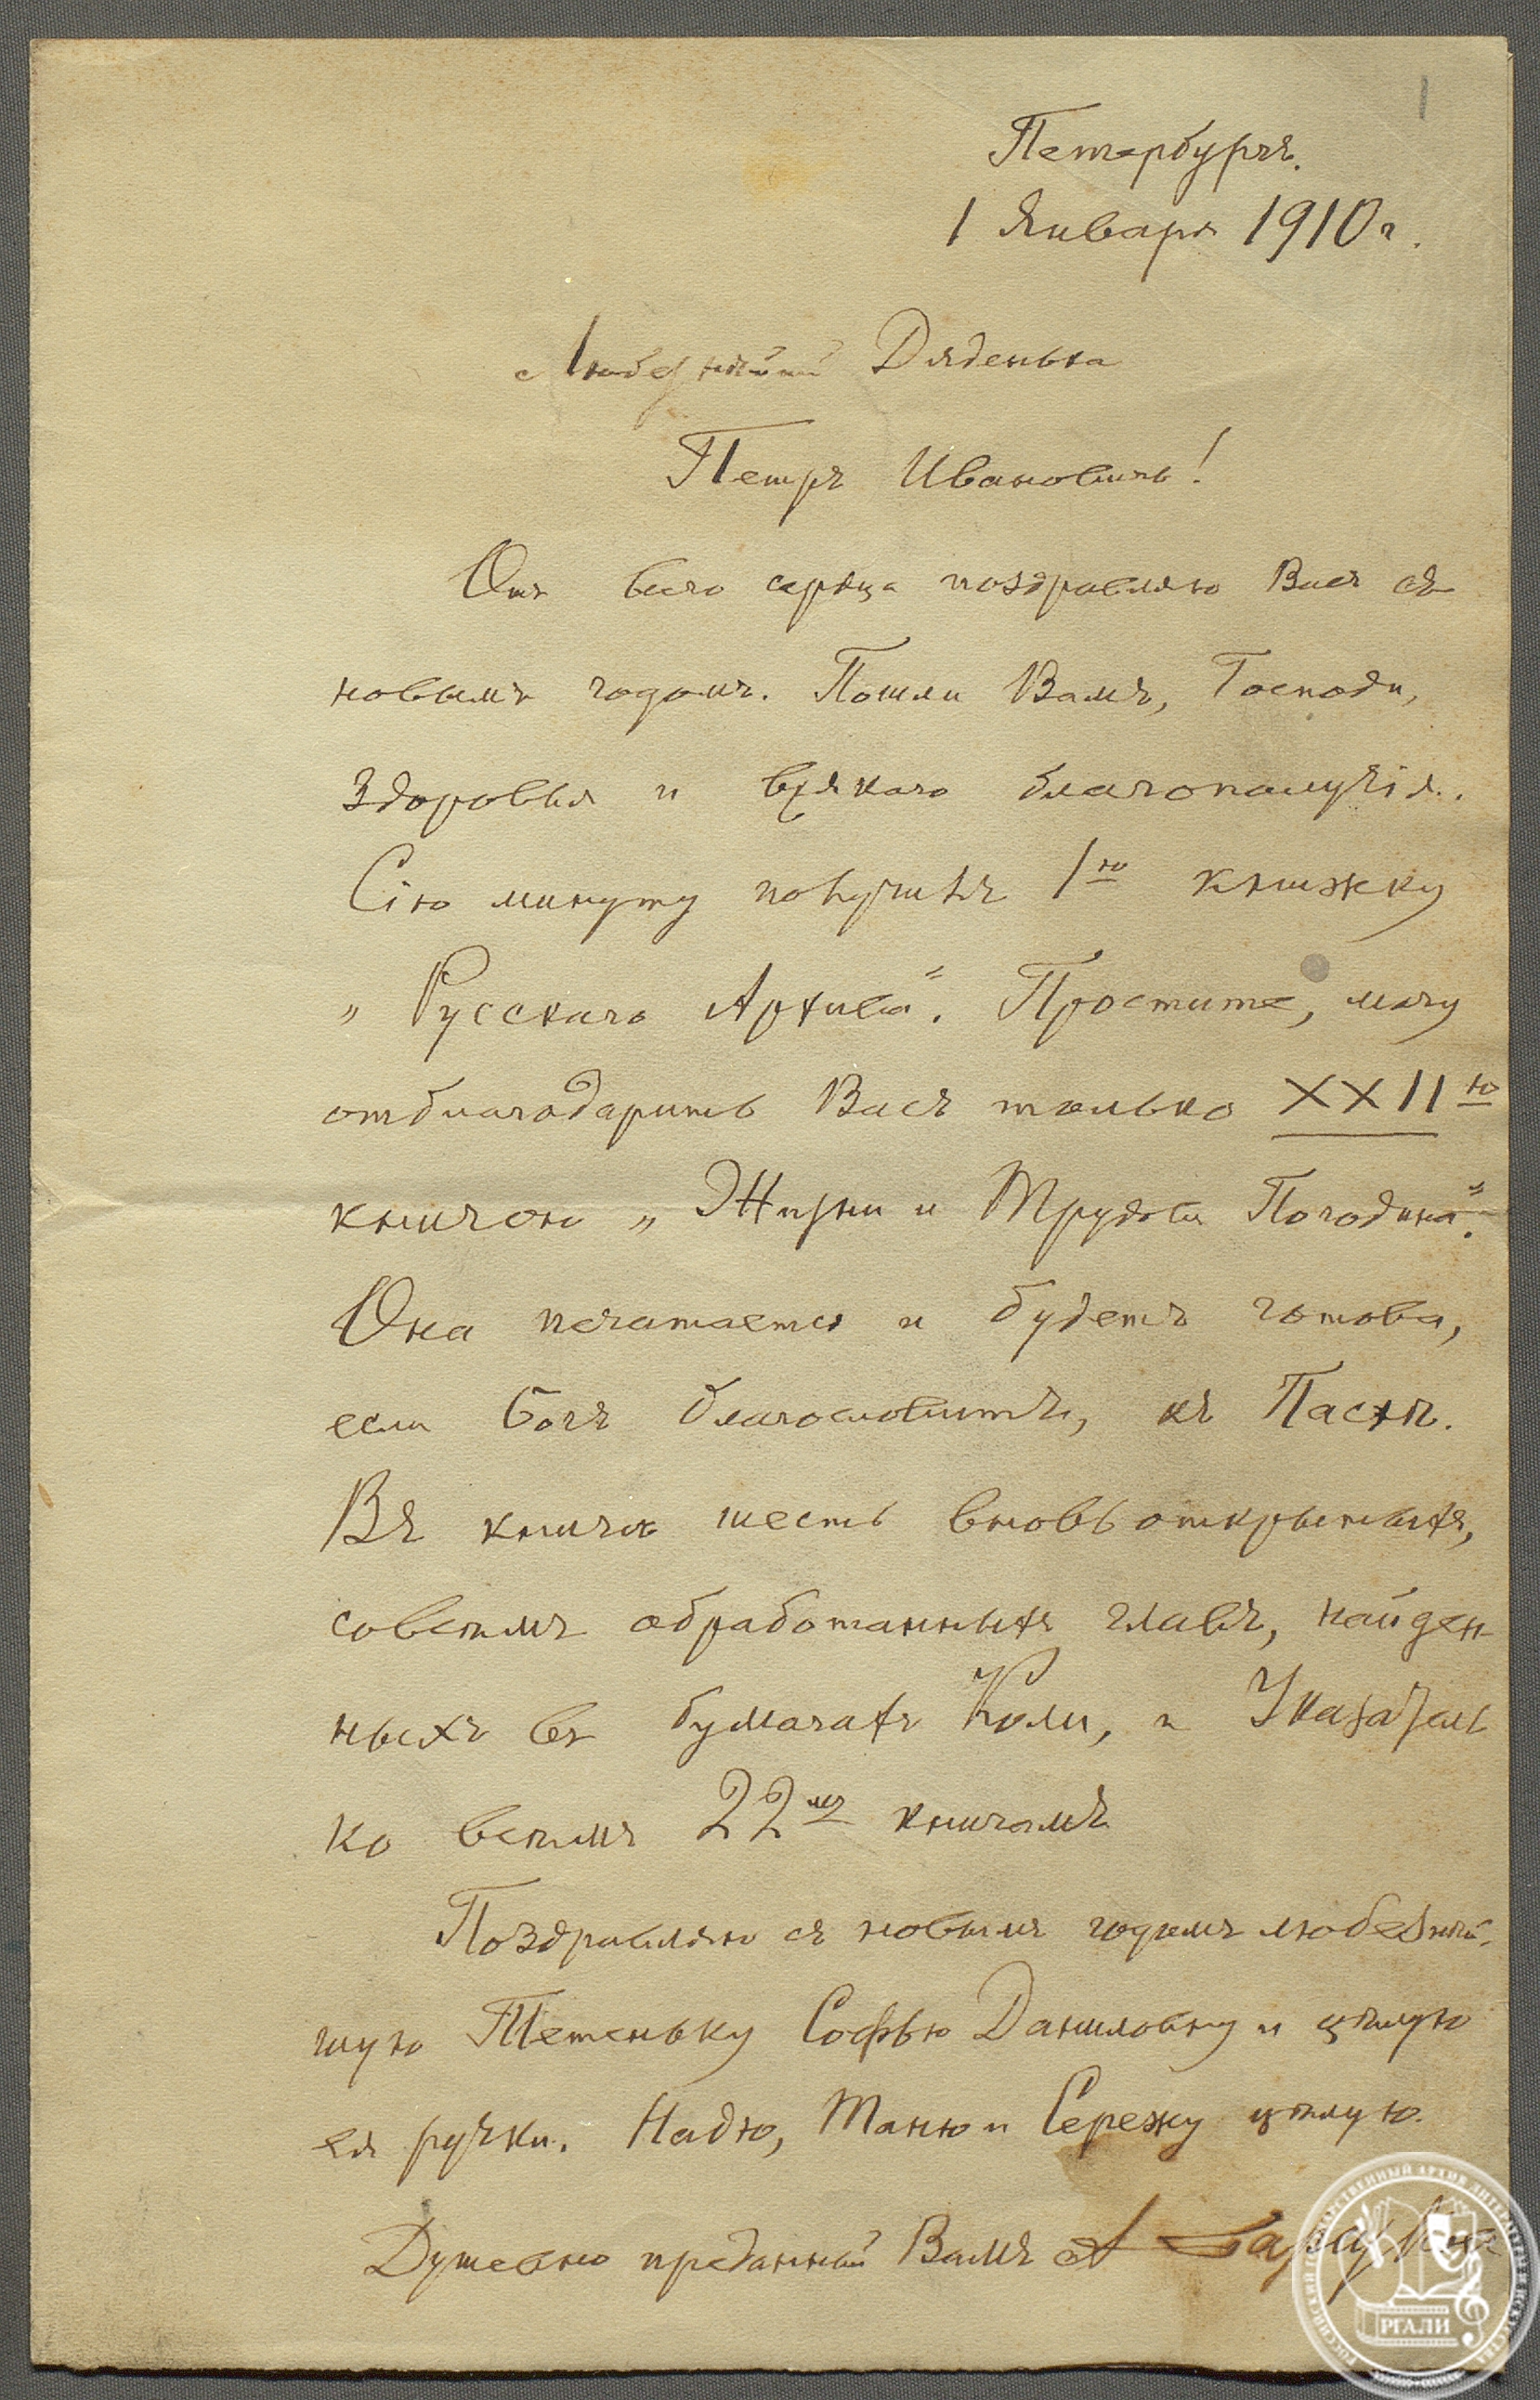 1
Петербургъ.
1 Января 1910 г.
Любезнѣйшій Дяденька
Петръ Ивановичъ!
Отъ всего сердца поздравляю Васъ съ
новымъ годомъ. Пошли Вамъ, Господи,
здоровья и всякаго благополучія.
Сію минуту получилъ 1ю книжку
„Русскаго Архива“. Простите, могу
отблагодарить Васъ только XXIIю
книгою „Жизни и Трудовъ Погодина“.
Она печатается и будетъ готова,
если Богъ благословитъ, къ Пасхѣ.
Въ книгѣ шесть вновь открытыхъ,
совсѣмъ обработанныхъ главъ, найден
ныхъ въ бумагахъ Коли, и Указатель
ко всѣмъ 22мъ книгамъ
Поздравляю съ новымъ годомъ любезнѣй-
шую Тетеньку Софью Даниловну и цѣлую
ея ручки. Надю, Таню и Сережу цѣлую.
Душевно преданный Вамъ А Барсуковъ
РОССИЙСКИЙ ГОСУДАРСТВЕННЫЙ АРХИВ ЛИТЕРАТУРЫ И ИСКУССТВА
РГАЛИ